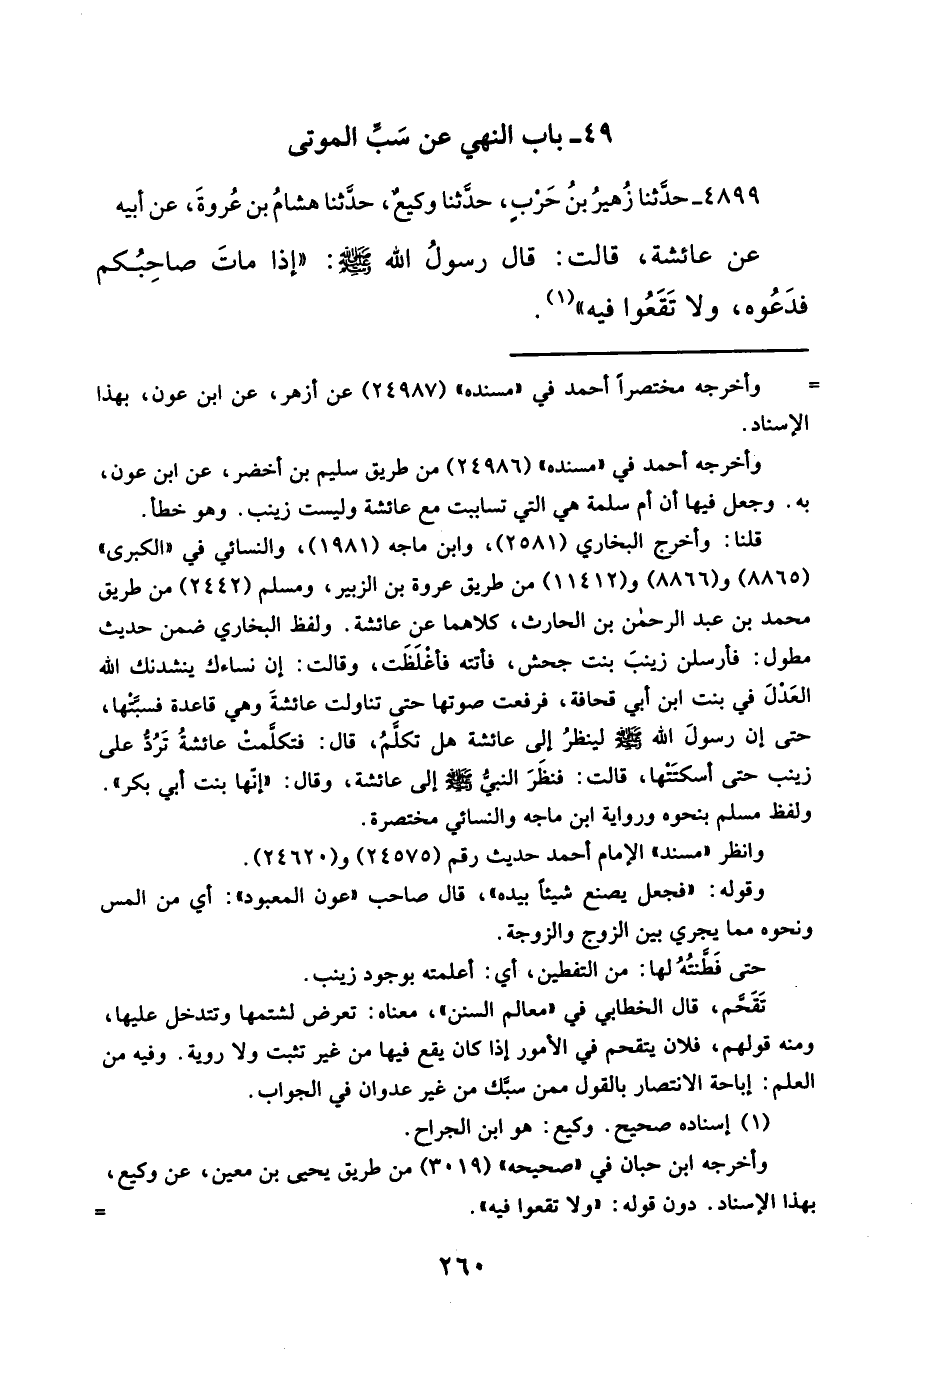 ٤٩ـ باب النهي عن سَبِّ الموتى
٤٨٩٩ـ حدَّثنا زُهيرُ بنُ حَرْبٍ، حدَّثنا وكيعٌ، حدَّثنا هشامُ بن عُروةَ، عن أبيه
عن عائشة، قالت: قال رسولُ الله ﷺ: «إذا ماتَ صاحِبُكم
فدَعُوه، ولا تَقَعُوا فيه»(١).
= وأخرجه مختصراً أحمد في «مسنده» (٢٤٩٨٧) عن أزهر، عن ابن عون، بهذا
الإسناد.
وأخرجه أحمد في «مسنده» (٢٤٩٨٦) من طريق سليم بن أخضر، عن ابن عون،
به. وجعل فيها أن أم سلمة هي التي تسابت مع عائشة وليست زينب. وهو خطأ.
قلنا: وأخرج البخاري (٢٥٨١)، وابن ماجه (١٩٨١)، والنسائي في «الكبرى»
(٨٨٦٥) و(٨٨٦٦) و(١١٤١٢) من طريق عروة بن الزبير، ومسلم (٢٤٤٢) من طريق
محمد بن عبد الرحمٰن بن الحارث، كلاهما عن عائشة. ولفظ البخاري ضمن حديث
مطول: فأرسلن زينبَ بنت جحش، فأتته فأغْلَظَت، وقالت: إن نساءك ينشدنك الله
العَدْلَ في بنت ابن أبي قحافة، فرفعت صوتها حتى تناولت عائشةَ وهي قاعدة فسبَّتْها،
حتى إن رسولَ الله ﷺ لينظرُ إلى عائشة هل تكلَّمُ، قال: فتكلَّمتْ عائشةُ تَرُدُّ على
زينب حتى أسكتَتْها، قالت: فنظَرَ النبيُّ ﷺ إلى عائشة، وقال: «إنّها بنت أبي بكر».
ولفظ مسلم بنحوه ورواية ابن ماجه والنسائي مختصرة.
وانظر «مسند» الإمام أحمد حديث رقم (٢٤٥٧٥) و(٢٤٦٢٠).
وقوله: «فجعل يصنع شيئاً بيده»، قال صاحب «عون المعبود»: أي من المس
ونحوه مما يجري بين الزوج والزوجة.
حتى فَطَّنتُهُ لها: من التفطين، أي: أعلمته بوجود زينب.
تَقَحَّم، قال الخطابي في «معالم السنن»، معناه: تعرض لشتمها وتتدخل عليها،
ومنه قولهم، فلان يتقحم في الأمور إذا كان يقع فيها من غير تثبت ولا روية. وفيه من
العلم: إباحة الانتصار بالقول ممن سبَّك من غير عدوان في الجواب.
(١) إسناده صحيح. وكيع: هو ابن الجراح.
وأخرجه ابن حبان في «صحيحه» (٣٠١٩) من طريق يحيى بن معين، عن وكيع،
بهذا الإسناد. دون قوله: «ولا تقعوا فيه». =
٢٦٠